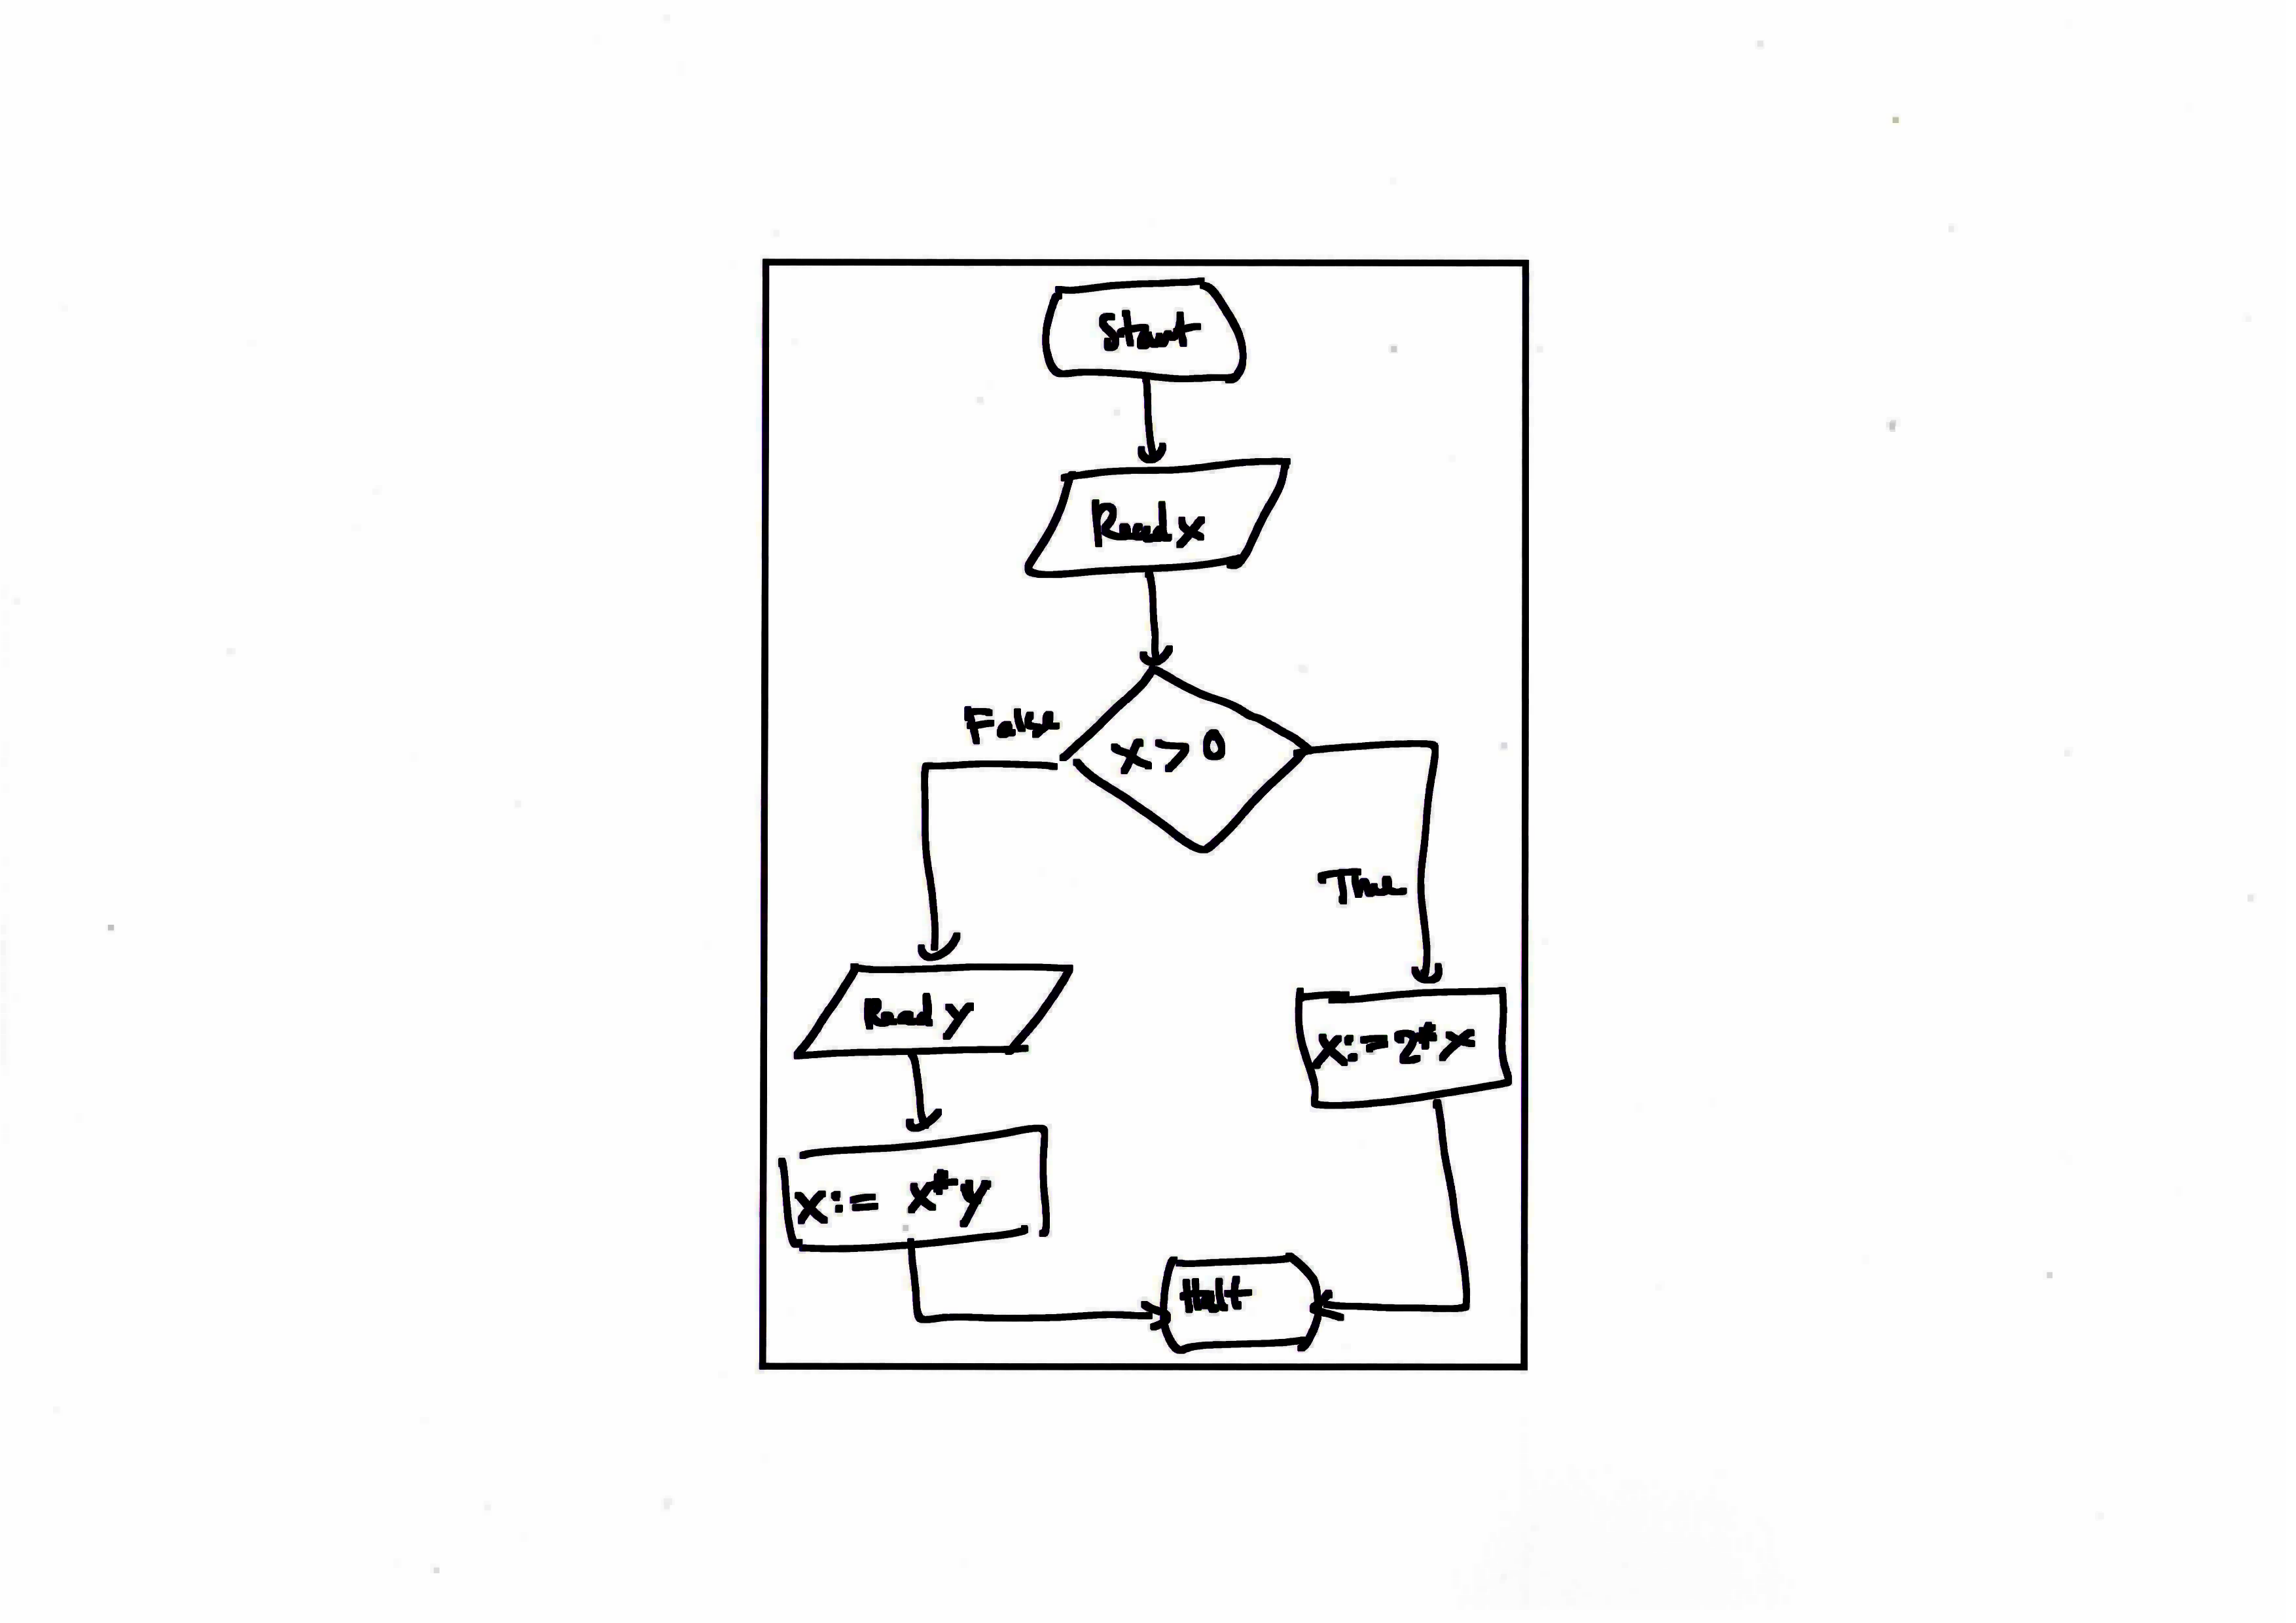 Start
Read x
False
x > 0
True
Read y
x:=2*x
x:= x*y
Halt